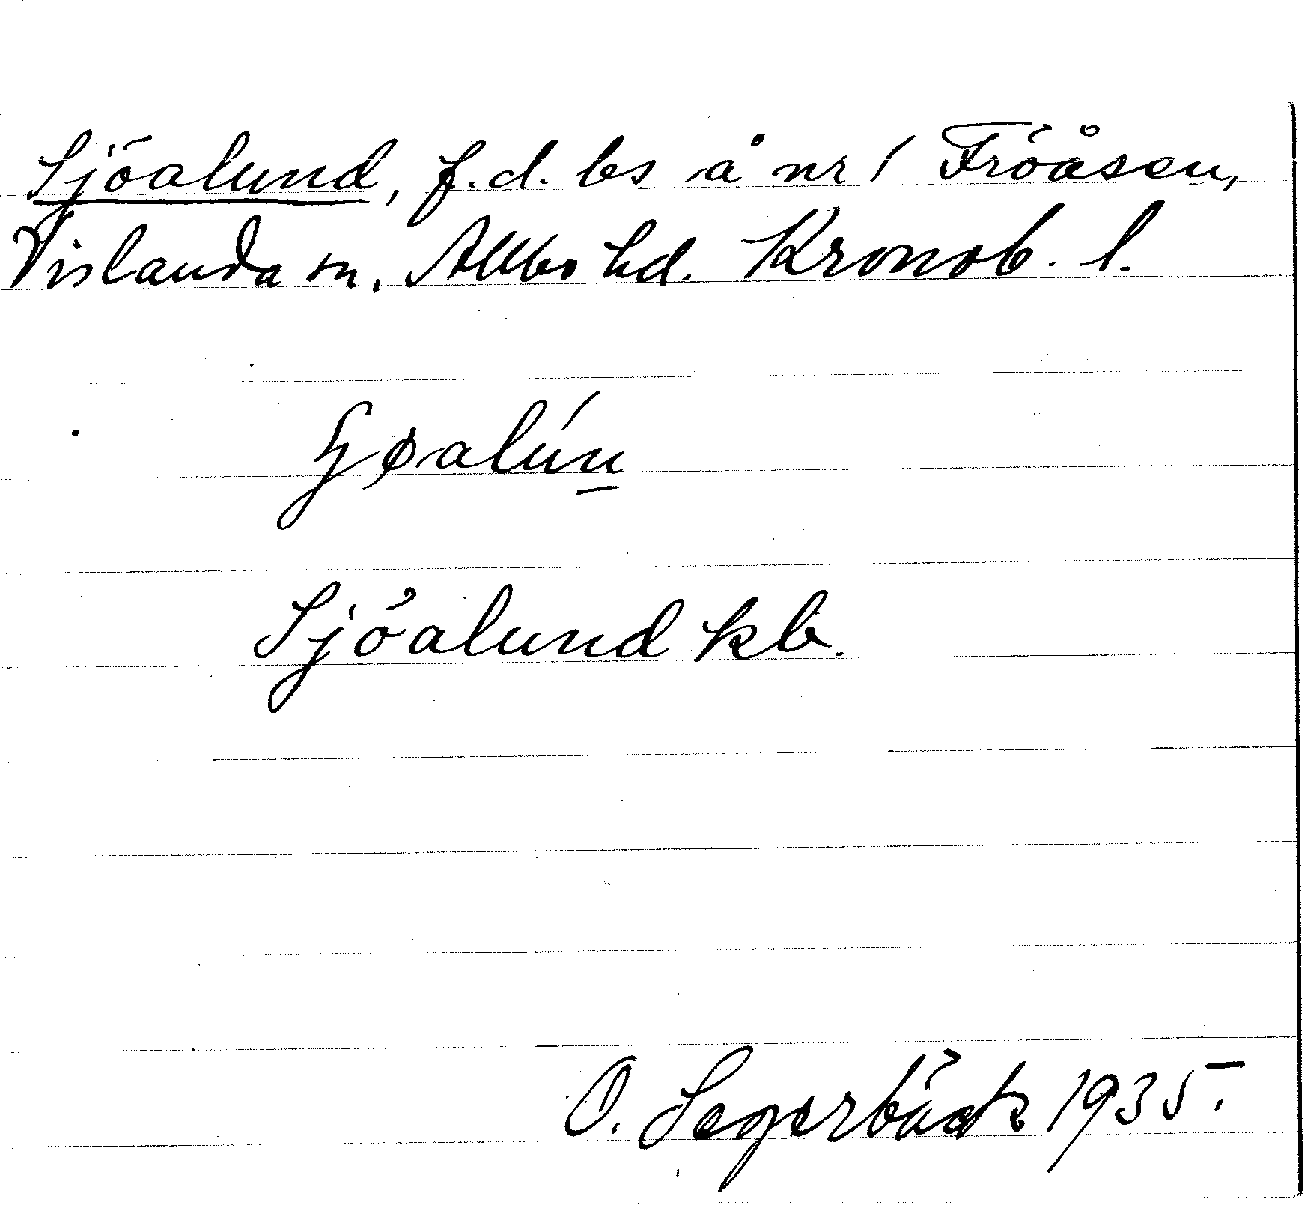 Sjöalund, f.d. bs å nr 1 Fröåsen,
Vislanda sn, Allbo hd. Kronob. l.
Sjöalund kb.
O. Segerbäck 1935.